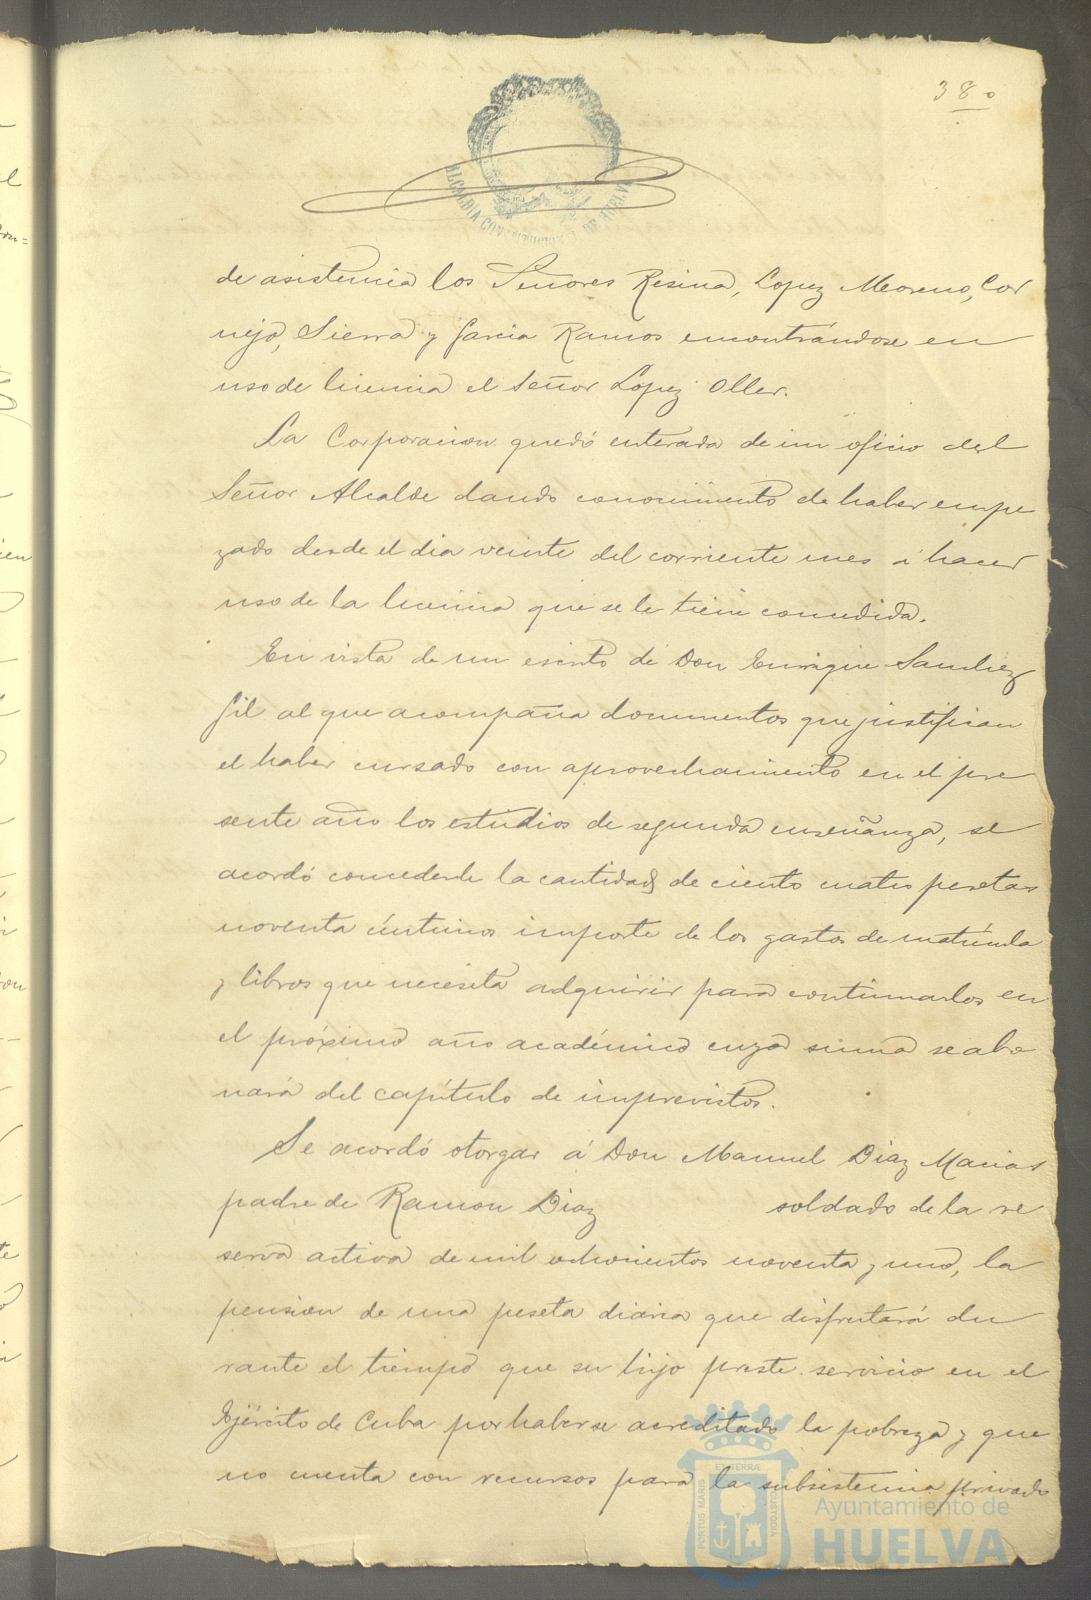 380
ALCALDIA CONSTITUCIONAL DE HUELVA
de asistencia los Señores Resina, Lopez Moreno, Cor
nejo, Sierra y Garcia Ramos encontrándose en
uso de licencia el Señor Lopez Oller.
La Corporacion quedó enterada de un oficio del
Señor Alcalde dando conocimiento de haber empe
zado desde el dia veinte del corriente mes á hacer
uso de la licencia que se le tiene concedida.
En vista de un escrito de Don Enrique Sanchez
Gil al que acompaña documentos que justifican
el haber cursado con aprovechamiento en el pre
sente año los estudios de segunda enseñanza, se
acordó concederle la cantidad de ciento cuatro pesetas
noventa céntimos importe de los gastos de matrícula
y libros que necesita adquirir para continuarlos en
el próximo año académico cuya suma se abo
nará del capítulo de imprevistos.
Se acordó otorgar á Don Manuel Diaz Macias
padre de Ramon Diaz soldado de la re
serva activa de mil ochocientos noventa y uno, la
pension de una peseta diaria que disfrutará du
rante el tiempo que su hijo preste servicio en el
Ejército de Cuba por haberse acreditado la pobreza y que
no cuenta con recursos para la subsistencia privado
PORTUS MARIS ET TERRÆ CUSTODIA
Ayuntamiento de
HUELVA